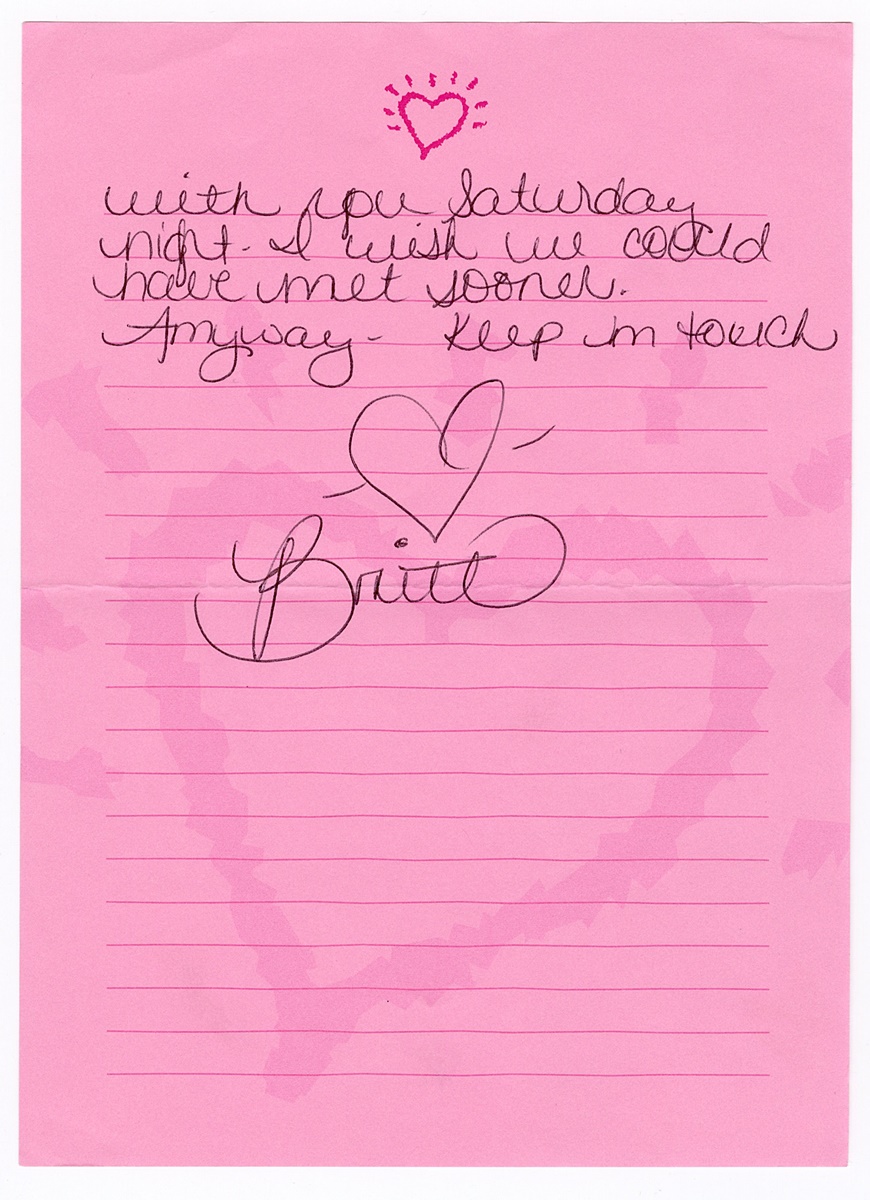 with you Saturday
night. I wish we could
have met sooner.
Anyway - Keep in touch
Britt